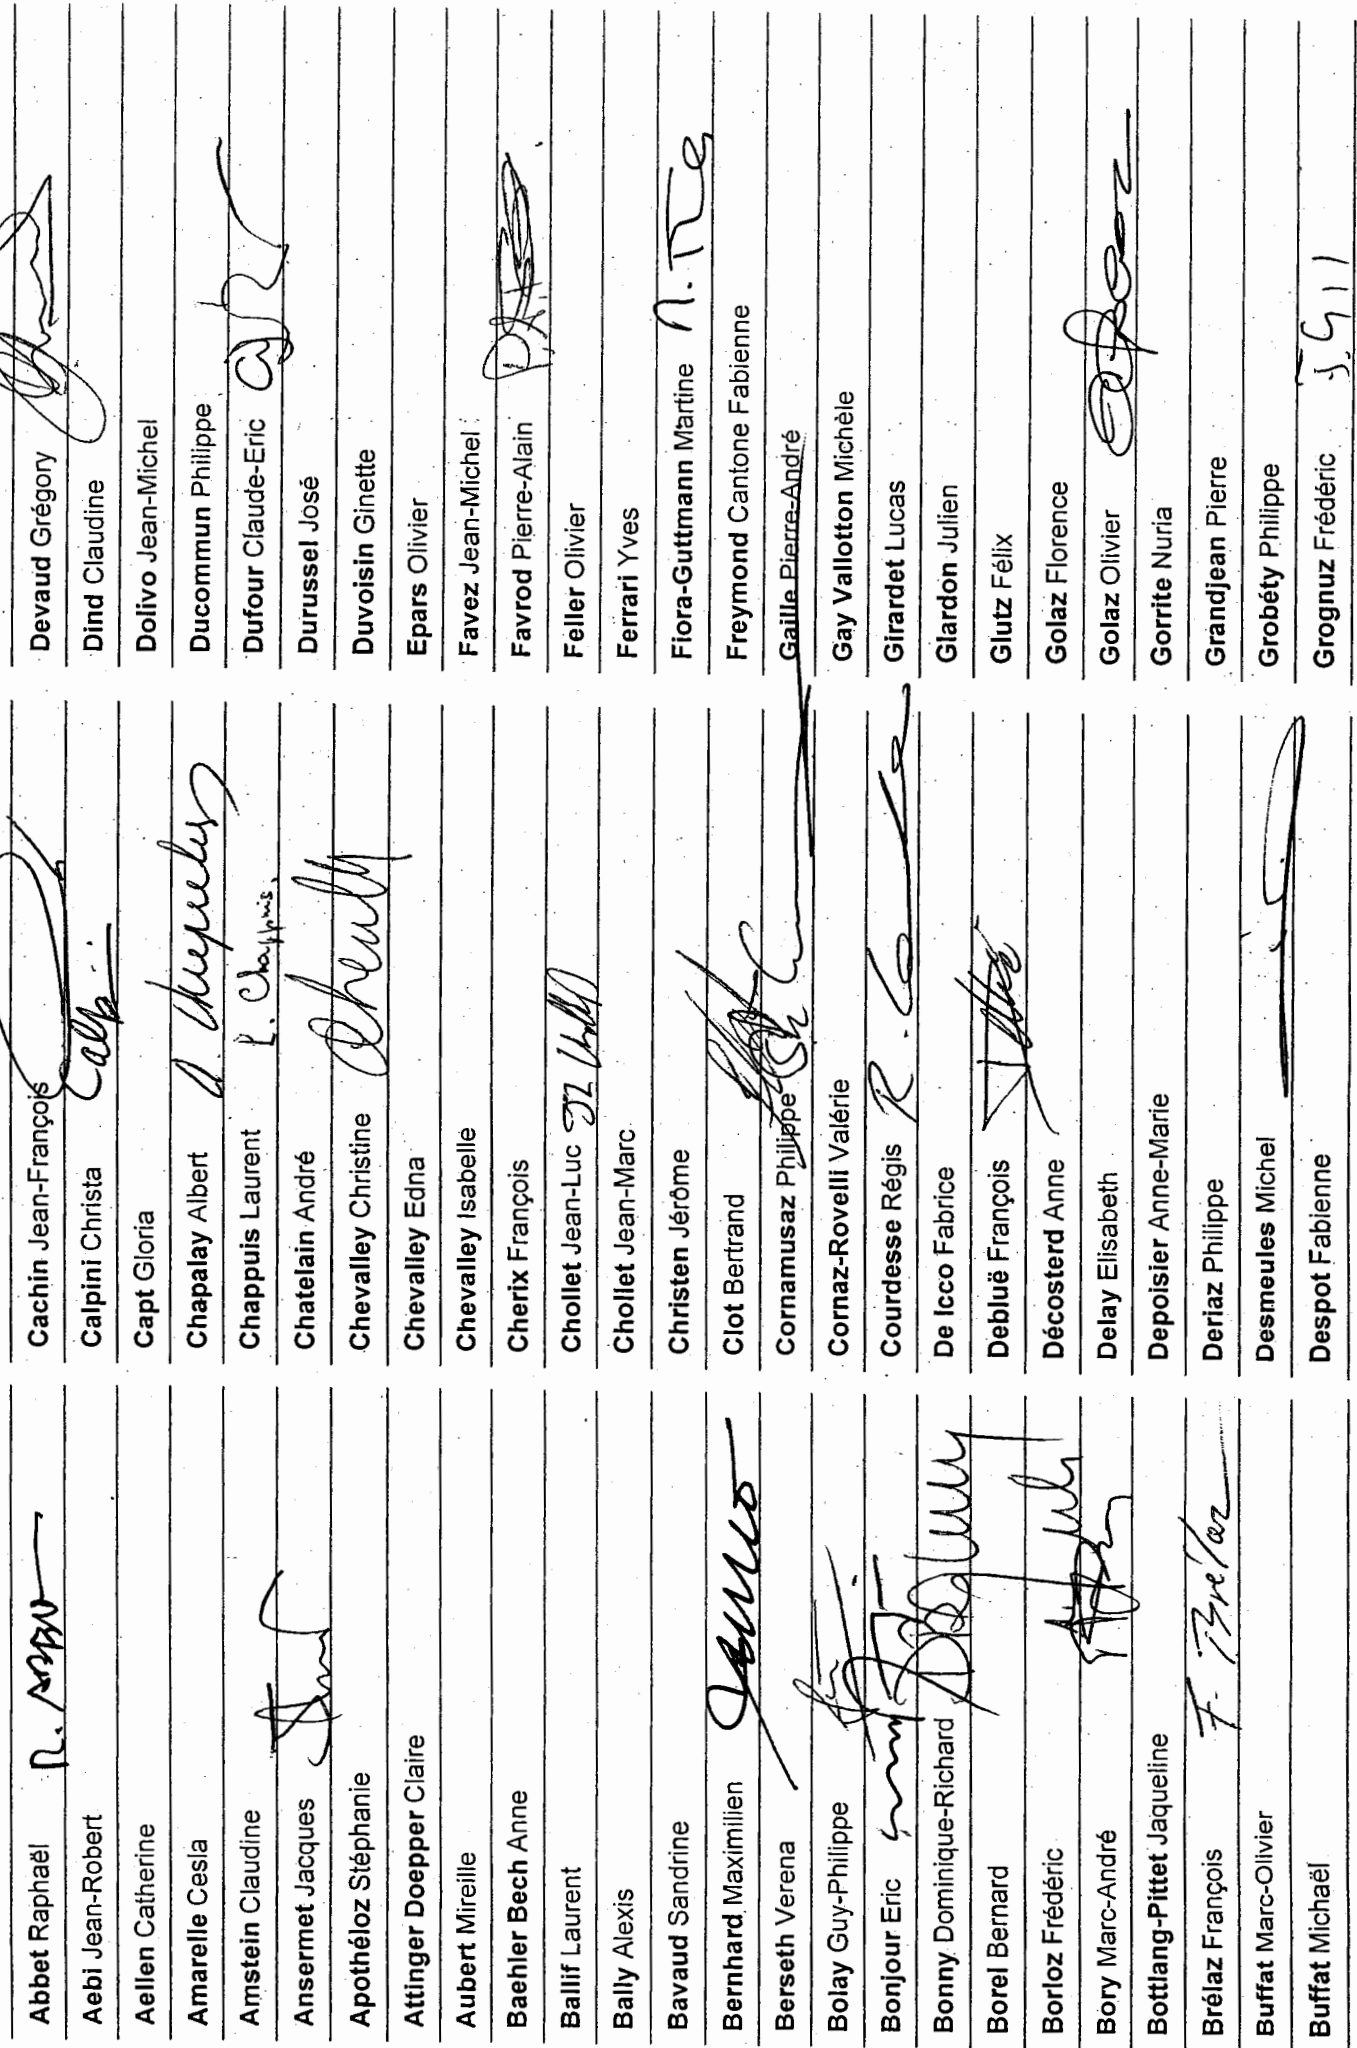 Abbet Raphaël
Aebi Jean-Robert
Aellen Catherine
Amarelle Cesla
Amstein Claudine
Ansermet Jacques
Apothéloz Stéphanie
Attinger Doepper Claire
Aubert Mireille
Baehler Bech Anne
Ballif Laurent
Bally Alexis
Bavaud Sandrine
Bernhard Maximilien
Berseth Verena
Bolay Guy-Philippe
Bonjour Eric
Bonny Dominique-Richard
Borel Bernard
Borloz Frédéric
Bory Marc-André
Bottlang-Pittet Jaqueline
Brélaz François F. Brélaz
Buffat Marc-Olivier
Buffat Michaël
Cachin Jean-François
Calpini Christa Calpi
Capt Gloria
Chapalay Albert
Chappuis Laurent L. Chappuis
Chatelain André
Chevalley Christine
Chevalley Edna
Chevalley Isabelle
Cherix François
Chollet Jean-Luc
Chollet Jean-Marc
Christen Jérôme
Clot Bertrand
Cornamusaz Philippe
Cornaz-Rovelli Valérie
Courdesse Régis
De Icco Fabrice
Debluë François
Décosterd Anne
Delay Elisabeth
Depoisier Anne-Marie
Deriaz Philippe
Desmeules Michel
Despot Fabienne
Devaud Grégory
Dind Claudine
Dolivo Jean-Michel
Ducommun Philippe
Dufour Claude-Eric
Durussel José
Duvoisin Ginette
Epars Olivier
Favez Jean-Michel
Favrod Pierre-Alain
Feller Olivier
Ferrari Yves
Fiora-Guttmann Martine
Freymond Cantone Fabienne
Gaille Pierre-André
Gay Vallotton Michèle
Girardet Lucas
Glardon Julien
Glutz Félix
Golaz Florence
Golaz Olivier
Gorrite Nuria
Grandjean Pierre
Grobéty Philippe
Grognuz Frédéric